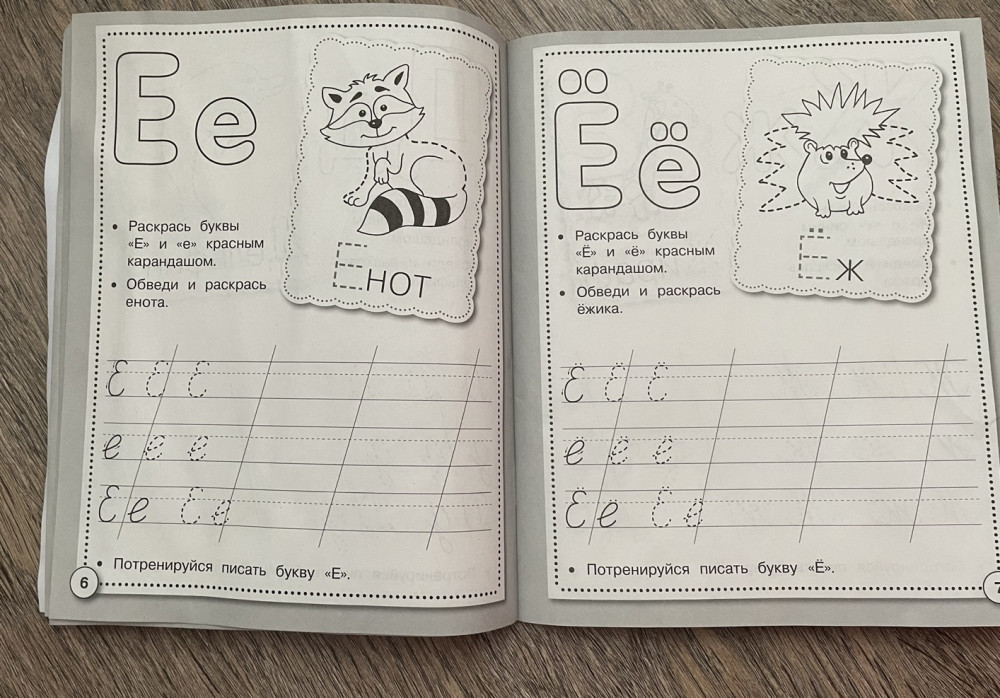 Е е
• Раскрась буквы
«Е» и «е» красным
карандашом.
• Обведи и раскрась
енота.
ЕНОТ
Е Е Е
е е е
Е е Е е
• Потренируйся писать букву «Е».
6
Ё ё
• Раскрась буквы
«Ё» и «ё» красным
карандашом.
• Обведи и раскрась
ёжика.
ЁЖ
Ё Ё Ё
ё ё ё
Ё ё Ё ё
• Потренируйся писать букву «Ё».